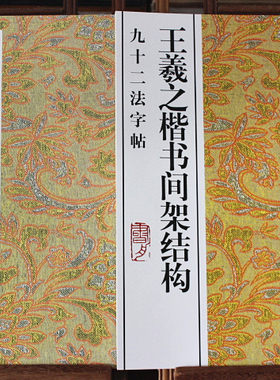 王羲之楷书间架结构
九十二法字帖